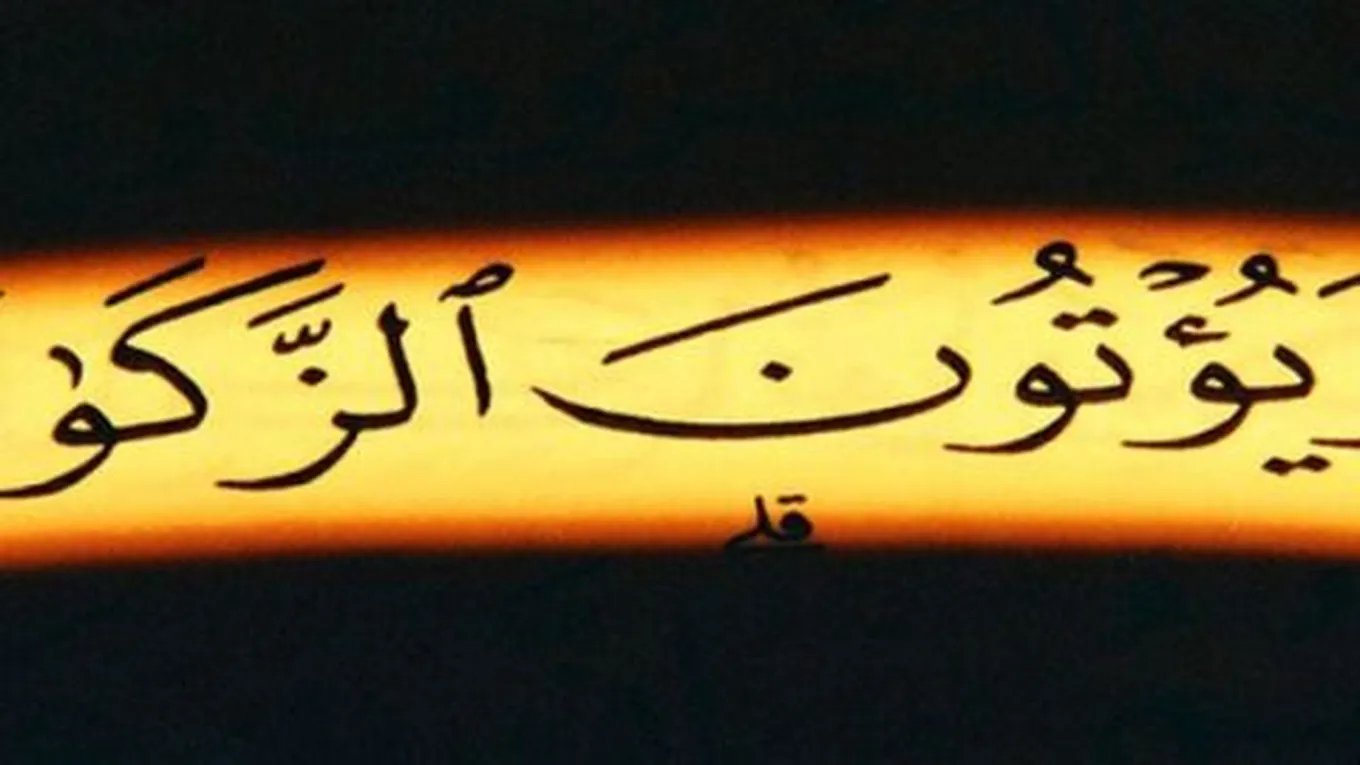 وَيُؤْتُونَ ٱلزَّكَوٰ
قلى